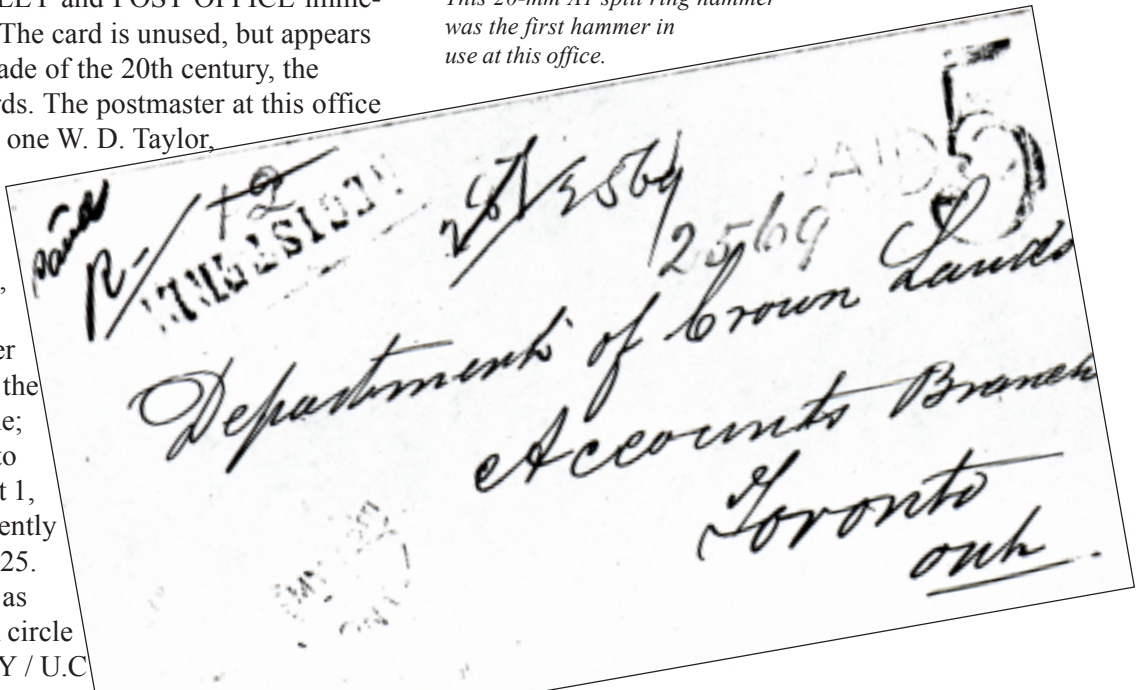 LEET and POST OFFICE mime-
The card is unused, but appears
ade of the 20th century, the
rds. The postmaster at this office
one W. D. Taylor,
,
er
the
e;
to
t 1,
ently
25.
as
circle
Y / U.C
This 20-mm A1 split ring hammer
was the first hammer in
use at this office.
paid
R-/ 12
2569
2569
AID 5
Department of Crown Lands
Accounts Branch
Toronto
Ont